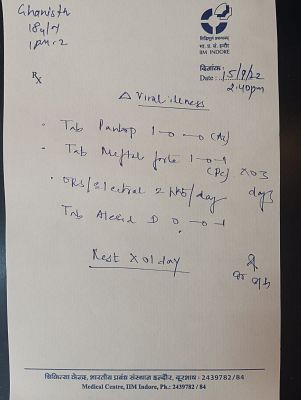 Ghanisth
18y/M
IPM-2
सिद्धिमूलं प्रबन्धनम्
भा. प्र. सं. इन्दौर
IIM INDORE
दिनांक :
Date : 15/8/22
2:40pm
Rx
△ Viral illness
· Tab Pantop 1-0-0 (Ac)
· Tab Meftal forte 1-0-1
(Pc) X 03
days
· ORS/Electral 2 pkts/day
Tab Alecid D 0-0-1
Rest X 01 day
चिकित्सा केन्द्र, भारतीय प्रबंध संस्थान इन्दौर, दूरभाष - 2439782/84
Medical Centre, IIM Indore, Ph.: 2439782 / 84